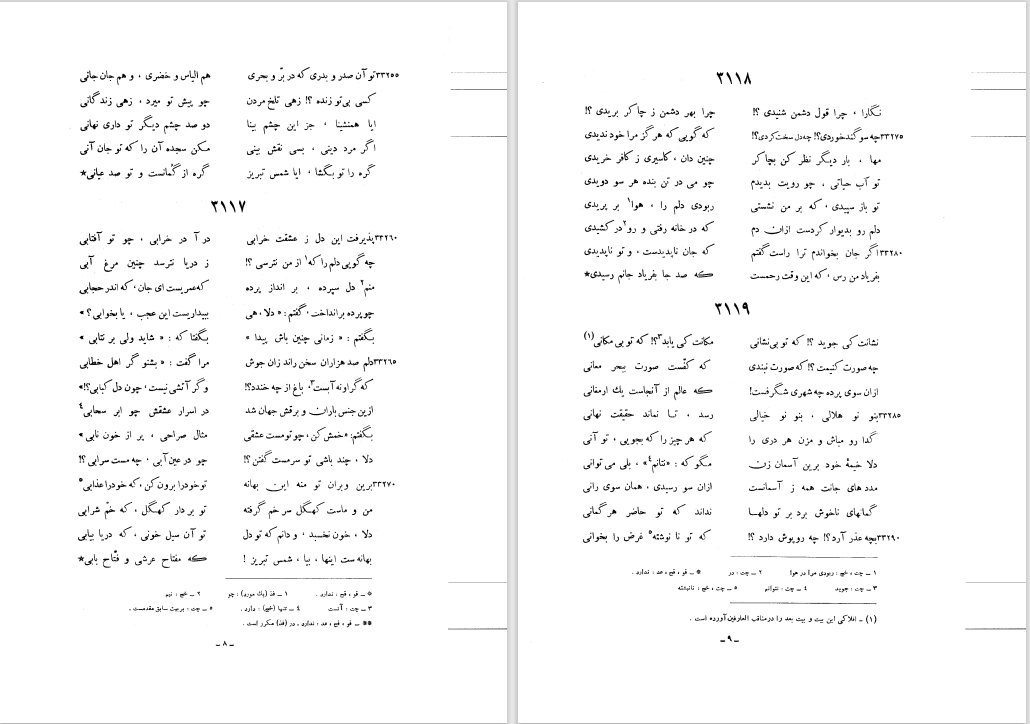 ۳۳۲۵۵ تو آن صدر و بدری که در برّ و بحری هم الیاس و خضری ، و هم جان جانی
کسی بی‌تو زنده ؟! زهی تلخ مردن چو پیش تو میرد ، زهی زندگانی
ایا همنشینا ، جز این چشم بینا دو صد چشم دیگر تو داری نهانی
اگر مرد دینی ، بسی نقش بینی مکن سجده آن را که تو جان آنی
گره را تو بگشا ، ایا شمس تبریز گره از گمانست و تو صد عیانی*
۳۱۱۷
۳۳۲۶۰ پذیرفت این دل ز عشقت خرابی در آ در خرابی ، چو تو آفتابی
چه گویی دلم را که۱ از من نترسی ؟! ز دریا نترسد چنین مرغ آبی
منم۲ دل سپرده ، بر انداز پرده که عمریست ای جان ، که اندر حجابی
چو پرده برانداخت ، گفتم : « دلا ، هی ببیداریست این عجب ، یا بخوابی ؟ »
بگفتم : « زمانی چنین باش پیدا » بگفتا که : « شاید ولی بر نتابی »
۳۳۲۶۵ دلم صد هزاران سخن راند زان جوش مرا گفت : « بشنو گر اهل خطابی
که گر او نه آبست۳، باغ از چه خندد؟! و گر آتشی نیست ، چون دل کبابی؟!»
ازین جنس باران و برقش جهان شد در اسرار عشقش چو ابر سحابی۴
بگفتم: «خمش کن ، چو تو مست عشقی مثال صراحی ، پر از خون نابی »
دلا ، چند باشی تو سرمست گفتن ؟! چو در عین آبی ، چه مست سرابی ؟!
۳۳۲۷۰ برین وبران تو منه این بهانه تو خود را برون کن ، که خود را عذابی۵
من و ماست کهگل سر خم گرفته تو بر دار کهگل ، که خمّ شرابی
دلا ، خون نخسبد ، و دانم که تو دل تو آن سیل خونی ، که دریا بیابی
بهانه ست اینها ، بیا ، شمس تبریز ! که مفتاح عرشی و فتّاح بابی*
* ــ قو ، قح ، ندارد . ۱ ــ فذ (یك مورد) : چو ۲ ــ خج : نیم
۳ ــ چت : آنست ۴ ــ تنها (خج) ، دارد . ۵ ــ چت : بربیت سابق مقدمست .
** ــ قو ، قح ، عد : ندارد . در (فذ) مکرر است .
ــ ۸ ــ
۳۱۱۸
نگارا ، چرا قول دشمن شنیدی ؟! چرا بهر دشمن ز چاکر بریدی ؟!
۳۳۲۷۵ چه سوگند خوردی؟! چه دل سخت کردی؟! که گویی که هرگز مرا خود ندیدی
مها ، بار دیگر نظر کن بچاکر چنین دان ، کاسیری ز کافر خریدی
تو آب حیاتی ، چو رویت بدیدم چو می در تن بنده هر سو دویدی
تو باز سپیدی ، که بر من نشستی ربودی دلم را ، هوا۱ بر پریدی
دلم رو بدیوار کردست ازان دم که در خانه رفتی و رو۲ در کشیدی
۳۳۲۸۰ اگر جان بخواندم ترا راست گفتم که جان ناپدیدست ، و تو ناپدیدی
بفریاد من رس ، که این وقت رحمست که صد جا بفریاد جانم رسیدی*
۳۱۱۹
نشانت کی جوید ؟! که تو بی‌نشانی مکانت کی یابد۳؟! که تو بی مکانی(۱)
چه صورت کنیمت ؟! که صورت نبندی که کفّست صورت ببحر معانی
ازان سوی پرده چه شهری شگرفست! که عالم از آنجاست یك ارمغانی
۳۳۲۸۵ بنو نو هلالی ، بنو نو خیالی رسد ، تا نماند حقیقت نهانی
گدا رو مباش و مزن هر دری را که هر چیز را که بجویی ، تو آنی
دلا خیمهٔ خود برین آسمان زن مگو که : «نتانم۴» ، بلی می توانی
مدد های جانت همه ز آسمانست ازان سو رسیدی ، همان سوی رانی
گمانهای ناخوش برد بر تو دلها نداند که تو حاضر هر گمانی
۳۳۲۹۰ بچه عذر آرد؟! چه روپوش دارد ؟! که تو نا نوشته۵ غرض را بخوانی
۱ ــ چت ، خج : ربودی مرا در هوا ۲ ــ چت : در * ــ قو ، قح ، عد : ندارد .
۳ ــ چت : جوید ۴ ــ چت : نتوانم ۵ ــ چت ، خج : نانبشته
(۱) ــ افلاکی این بیت و بیت بعد را در مناقب العارفین آورده است .
ــ ۹ ــ